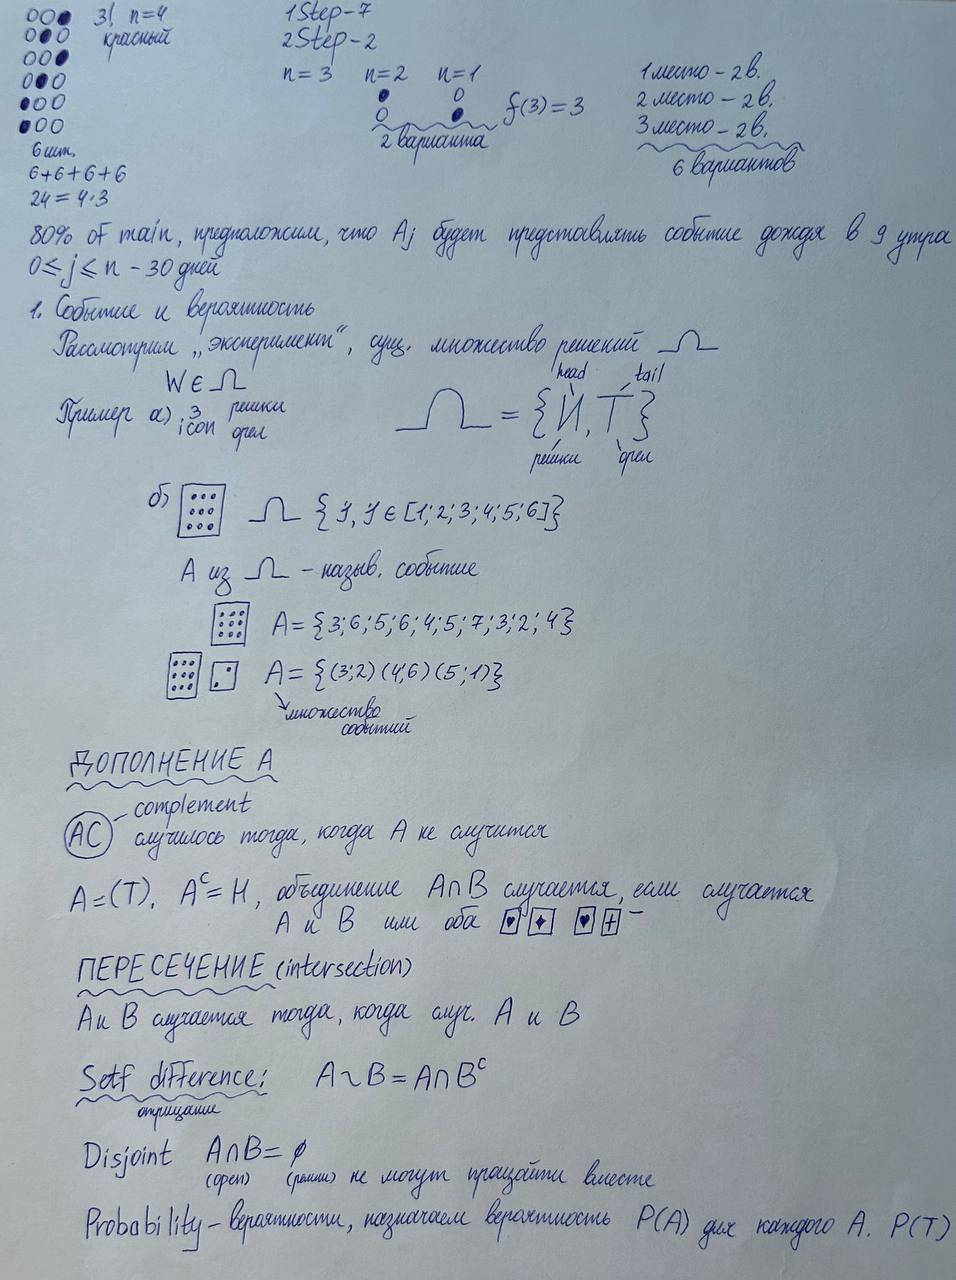 3! n=4
красный
6 шт.
6+6+6+6
24 = 4·3
1 Step-7
2 Step-2
n=3 n=2 n=1
f(3)=3
2 варианта
1 место - 2 в.
2 место - 2 в.
3 место - 2 в.
6 вариантов
80% of main, предположим, что Aj будет представлять событие дождя в 9 утра
0≤j≤n - 30 дней
1. Событие и вероятность
Рассмотрим „эксперимент“, сущ. множество решений Ω
W ∈ Ω
Пример а) 3 решки
icon орел
head tail
Ω = {И, T}
решки орел
б) Ω {У, У ∈ [1; 2; 3; 4; 5; 6]}
A из Ω - назыв. событие
A = {3; 6; 5; 6; 4; 5; 7; 3; 2; 4}
A = {(3;2) (4;6) (5;1)}
множество
событий
ДОПОЛНЕНИЕ A
complement
AC случилось тогда, когда A не случится
A=(T), Aᶜ=H, объединение A∩B случается, если случается
A и B или оба
ПЕРЕСЕЧЕНИЕ (intersection)
A и B случается тогда, когда случ. A и B
Setf difference: A~B = A∩Bᶜ
отрицание
Disjoint A∩B = ∅
(орел) (решки) не могут произойти вместе
Probability - вероятности, назначаем вероятность P(A) для каждого A. P(T)